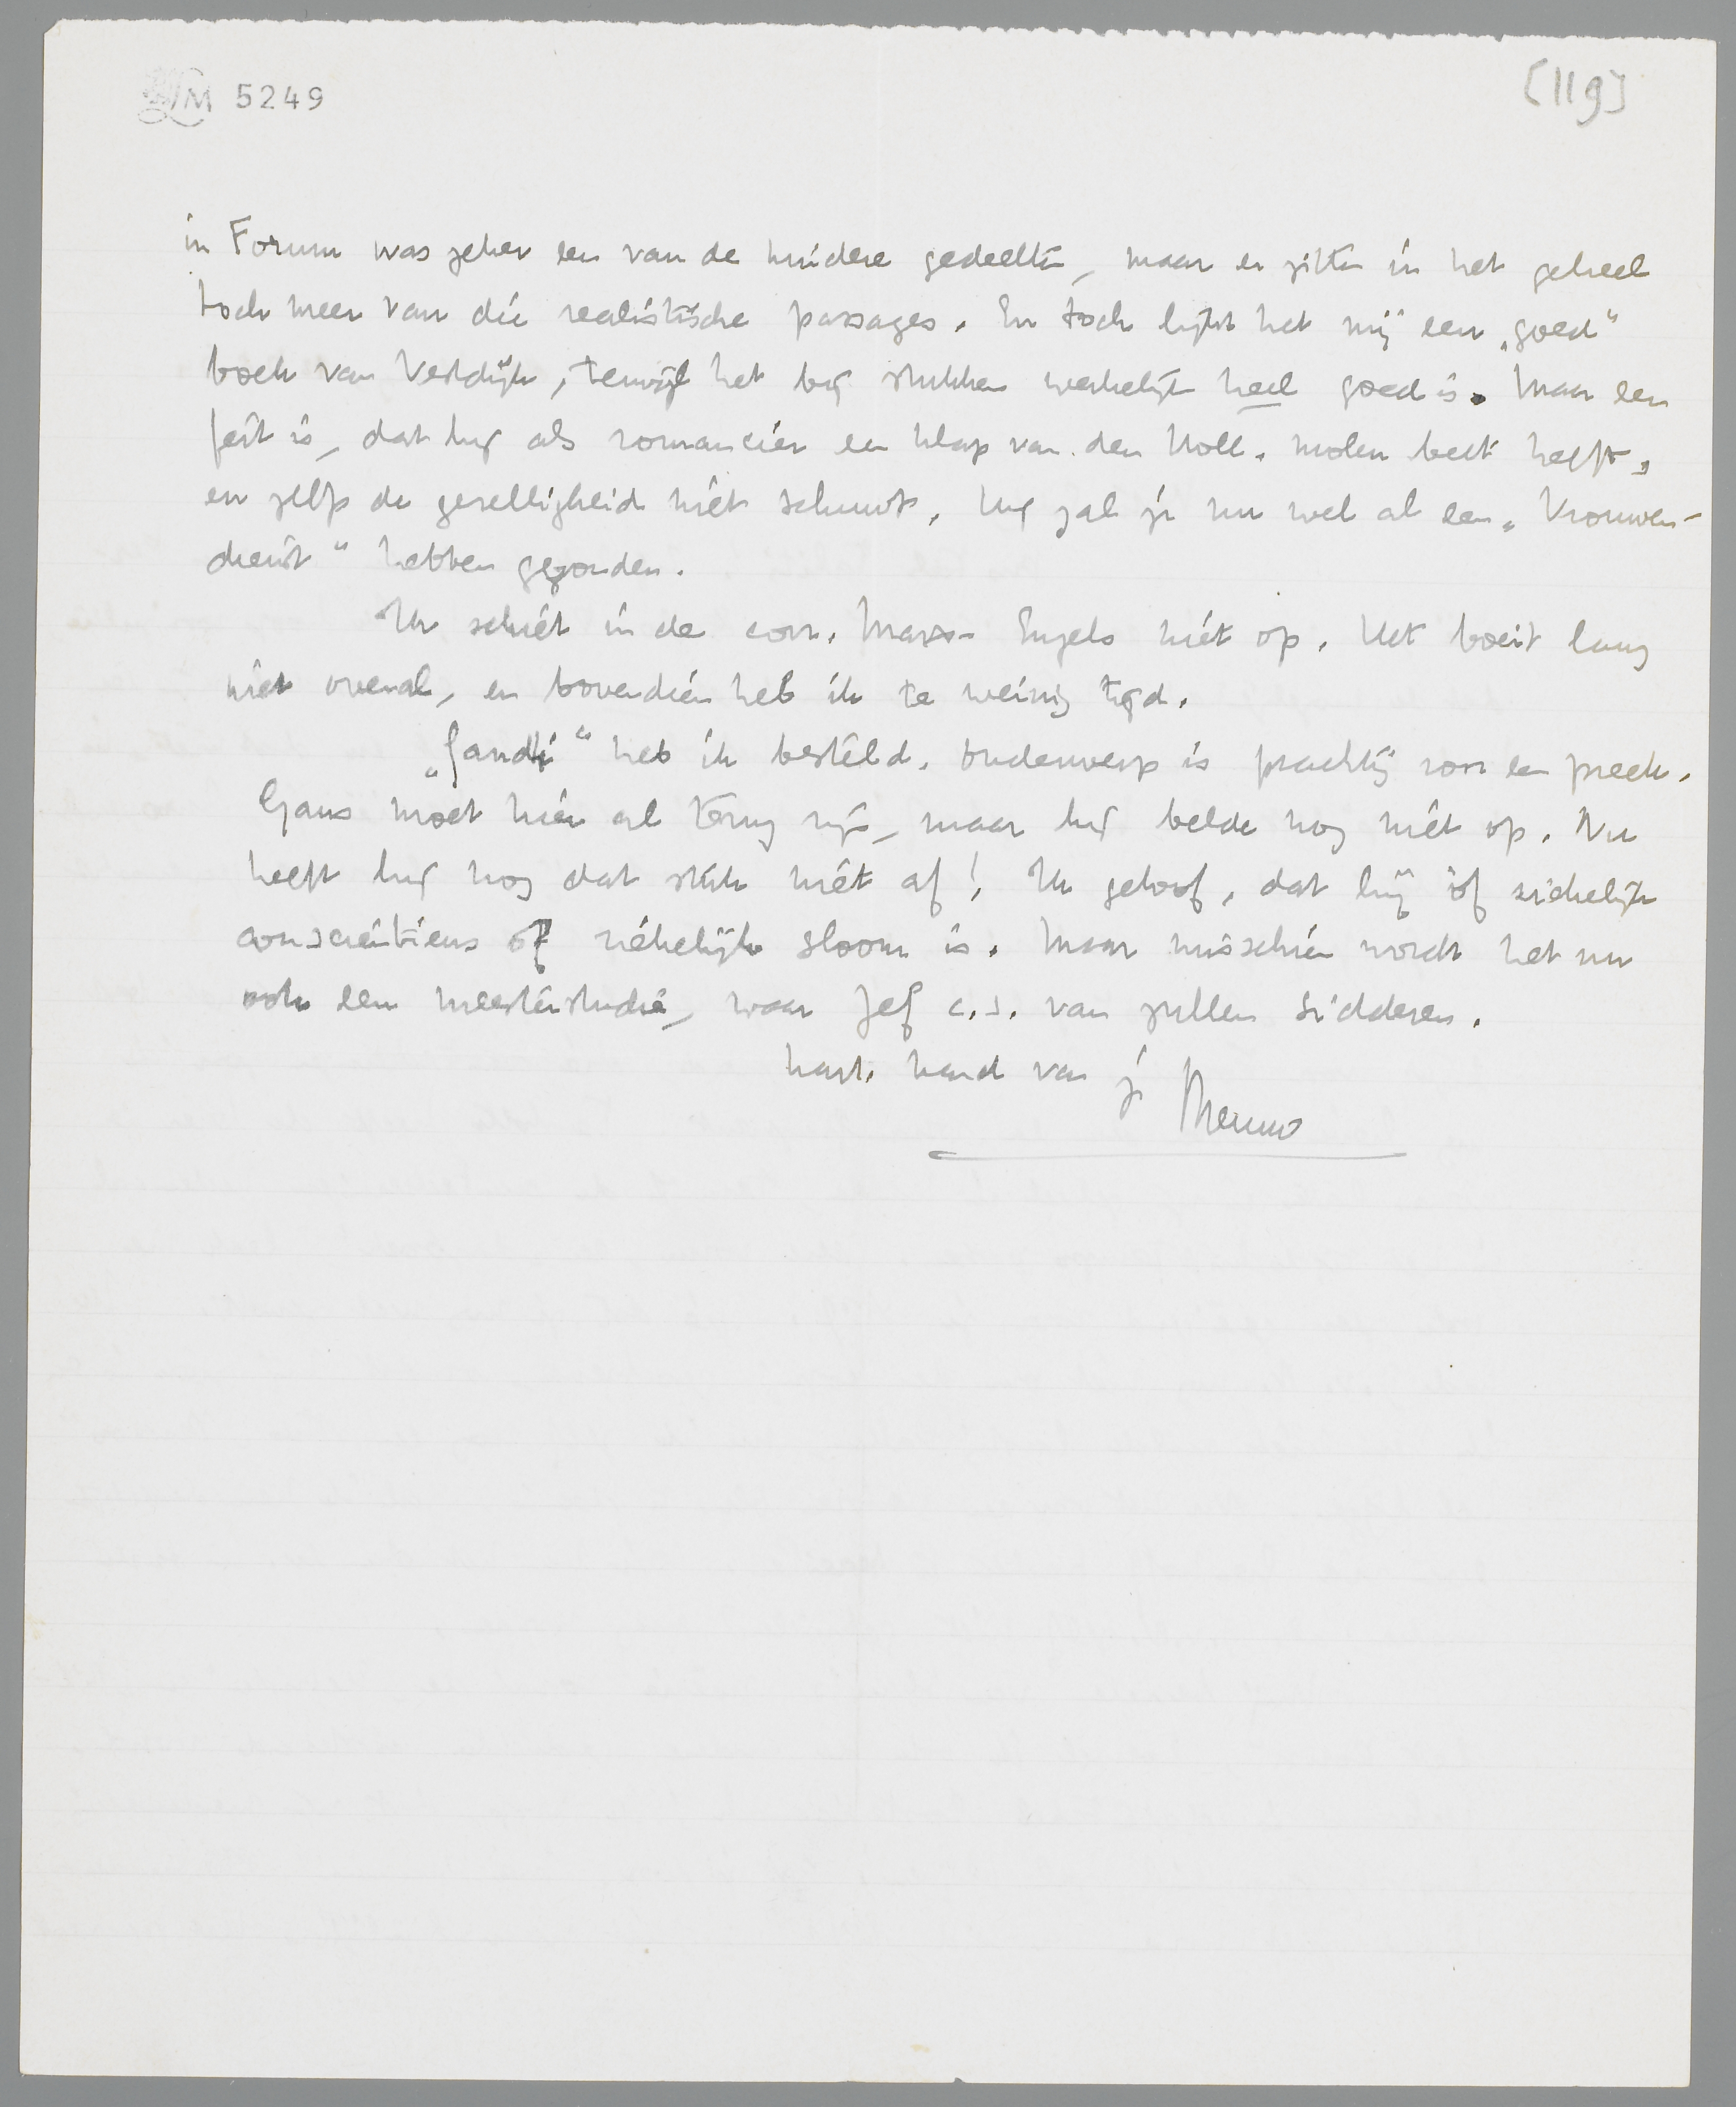 LM 5249
[119]
in Forum was zeker een van de mindere gedeelten, maar er zitten in het geheel
toch meer van die realistische passages. En toch lijkt het mij een „goed"
boek van Vestdijk, terwijl het bij stukken werkelijk heel goed is. Maar een
feit is, dat hij als romancier een klap van den Holl. molen beet heeft,
en zelfs de gezelligheid niet schuwt. Hij zal je nu wel al een „Vrouwen-
dienst" hebben gezonden.
Ik schiet in de corr. Marx-Engels niet op. Het boeit lang
niet overal, en bovendien heb ik te weinig tijd.
„Gandhi" heb ik besteld. Onderwerp is prachtig voor een preek.
Gans moet hier al terug zijn, maar hij belde nog niet op. Nu
heeft hij nog dat stuk niet af! Ik geloof, dat hij òf ziekelijk
consciëntieus òf ziekelijk sloom is. Maar misschien wordt het nu
ook een meesterstudie, waar Jef c.s. van zullen sidderen.
hart. hand van je Menno